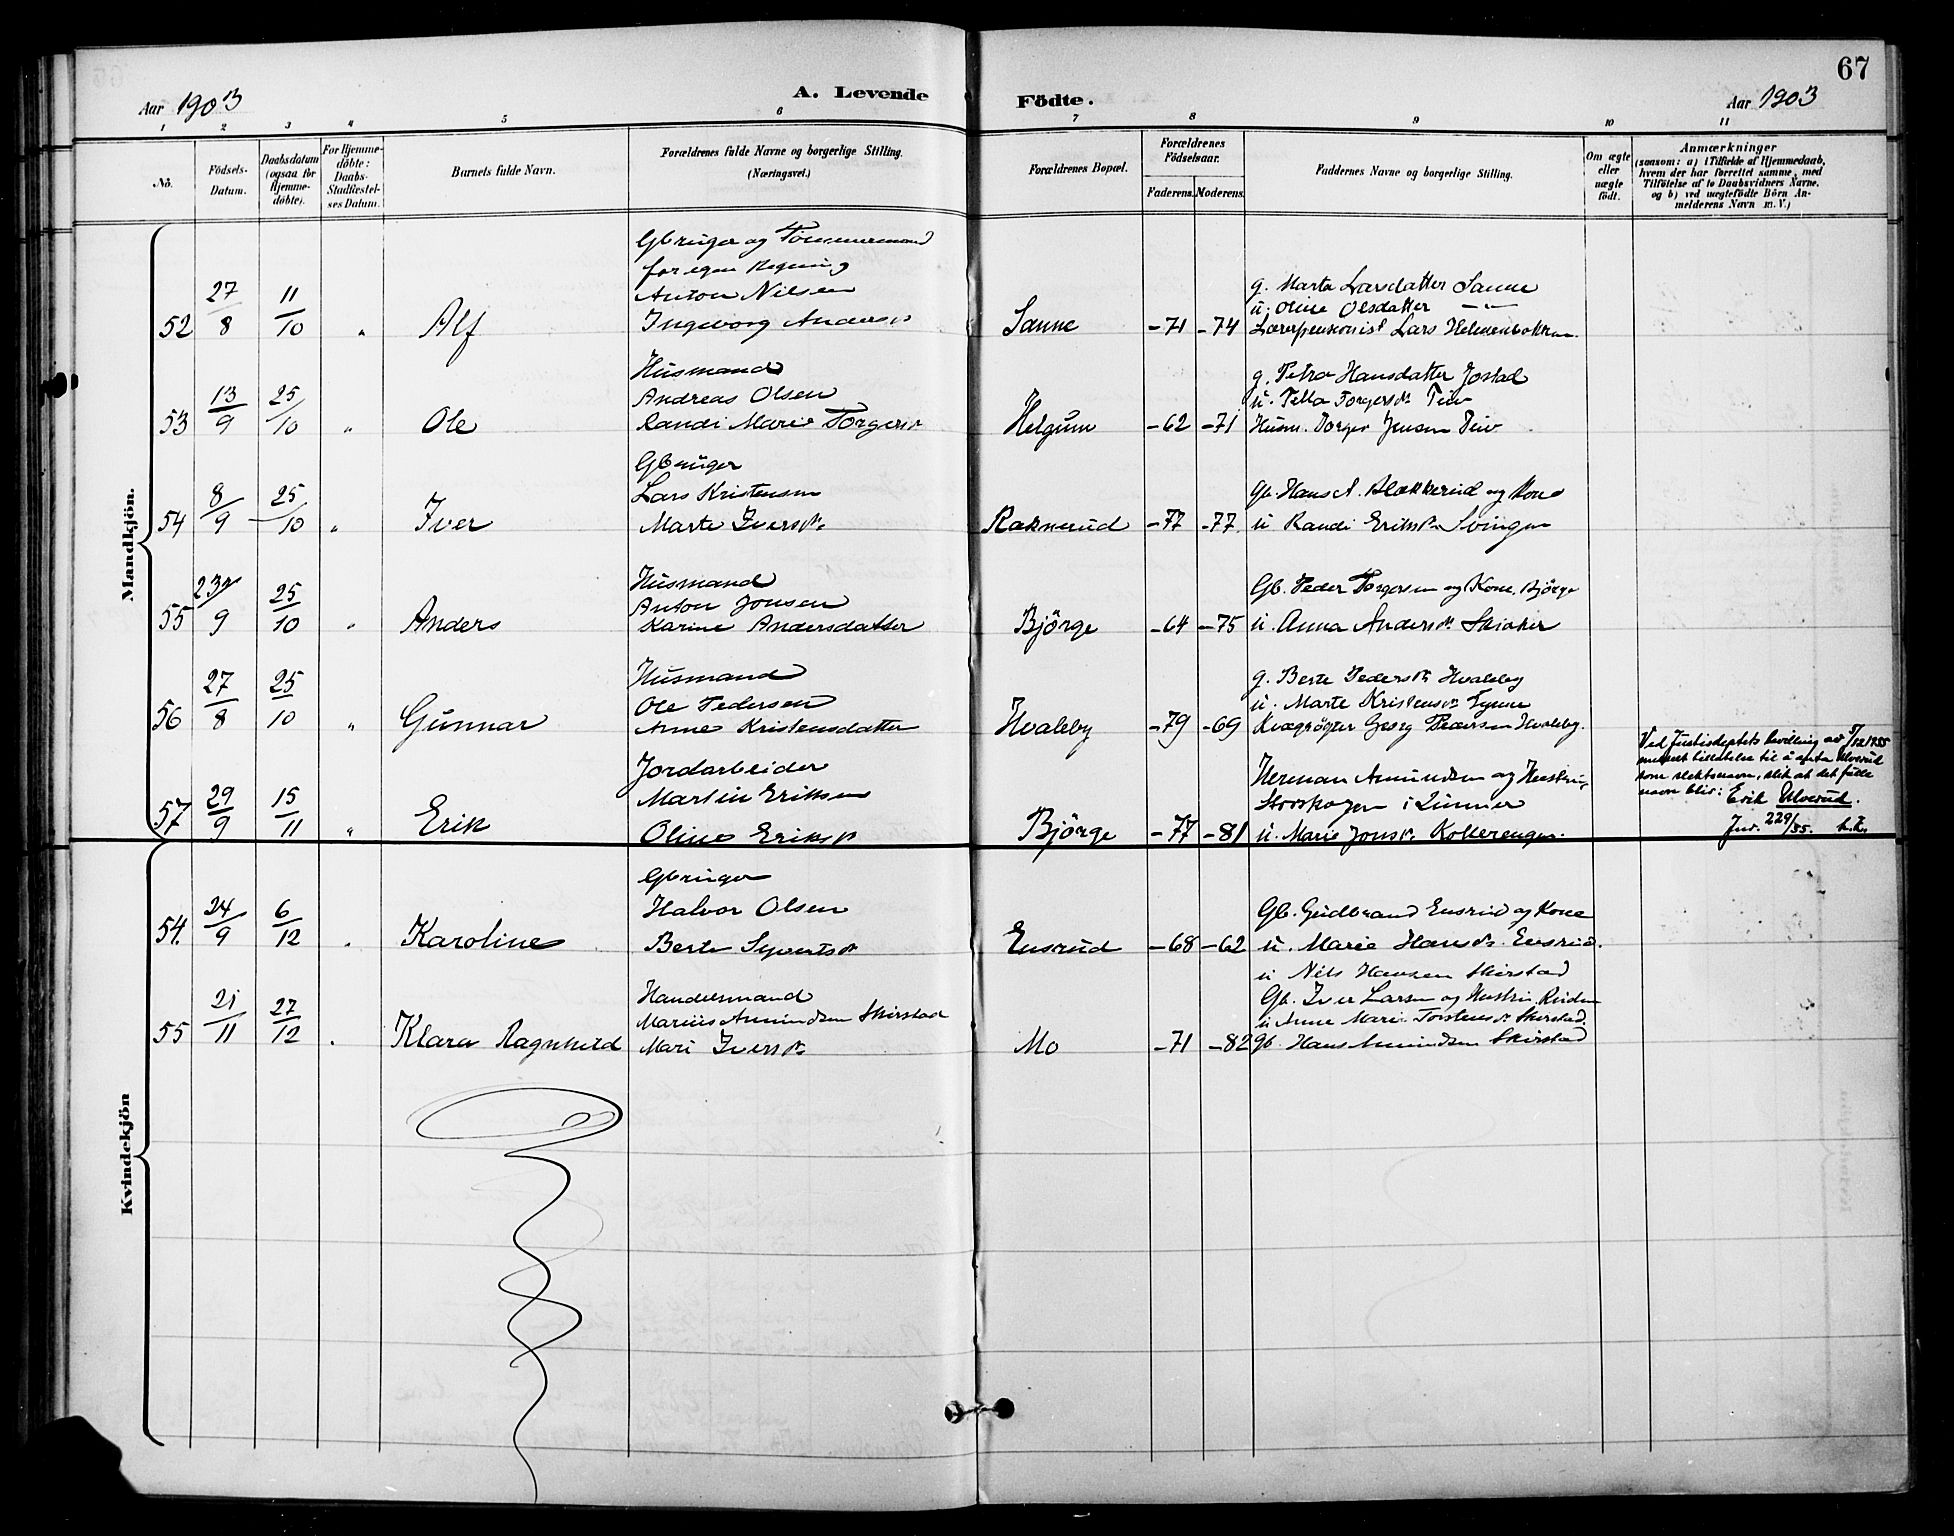 67
Aar 1903
A. Levende
Födte.
Aar 1903
1 2 3 4 5 6 7 8 9 10 11
No.
Födsels-Datum.
Daabsdatum (ogsaa for Hjemme-döbte).
For Hjemme-döbte: Daabs-Stadfæstel-ses Datum.
Barnets fulde Navn.
Forældrenes fulde Navne og borgerlige Stilling.
(Næringsvei.)
Forældrenes Bopæl.
Forældrenes Födselsaar.
Faderens. Moderens.
Faddernes Navne og borgerlige Stilling.
Om ægte eller uægte födt.
Anmærkninger
(saasom: a) i Tilfælde af Hjemmedaab,
hvem der har forrettet samme, med
Tilföielse af to Daabsvidners Navne,
og b) ved uægtefödte Börn An-
melderens Navn m. V.)
Mandkjön.
Gbruger og Tömmermand
for egen Regning
Anton Nilsen
52 27/8 11/10 " Alf Ingeborg Andersd.
Sanne -71 -74
g. Marte Larsdatter Sanne
u. Oline Olsdatter — " —
Lærerpensionist Lars
Husmand
Andreas Olsen
53 13/9 25/10 " Ole Randi Marie Torgersd.
Helgum -62 -71
g. Petra Hansdatter Jostad
u. Torgersd.
Husm. Torger Jensen
Gbruger
Lars Kristensen
54 8/9 25/10 " Iver Marte Iversd.
Raknerud -77 -77
Gb. Hans A. Blækkerud og Kone
u Randi Eriksd. Svingen
Husmand
Anton Jonsen
55 23/9 25/10 " Anders Karine Andersdatter
Björge -64 -75
Gb. Peder Torgersen og Kone, Björge
u. Anna Andersd. Skiaker
Husmand
Ole Pedersen
56 27/8 25/10 " Gunnar Anne Kristensdatter
Hvaleby -79 -69
g. Berte Pedersd. Hvaleby
u. Marte Kristensd.
Kvægrögter Georg Pedersen Hvaleby.
Jordarbeider
Martin Eriksen
57 29/9 15/11 " Erik Oline Eriksd.
Björge -77 -81
Herman Amundsen og Hustru,
Storskogen i Lunner
u. Marie Jonsd. Kollerengen.
Ved Justisdeptets bevilling av 7/12 1955
meddelt tillatelse til å anta Ulverud
som slektsnavn, slik at det fulle
navn blir: Erik Ulverud.
Jnr. 229/55.
Kvindekjön
Gbruger
Halvor Olsen
54. 24/9 6/12 " Karoline Berte Syvertsd.
Ensrud -68 -62
Gb. Gudbrand Ensrud og Kone
u. Marie Hansd. Ensrud.
u Nils Hansen Skirstad
Handelsmand
Marius Amundsen Skirstad
55 21/11 27/12 " Klara Ragnhild Mari Iversd.
Mo -71 -82
Gb. Iver Larsen og Hustru
u Anne Marie Torstensd. Skirstad.
Gb. Hans Amundsen Skirstad